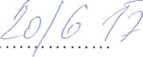 20/6 17